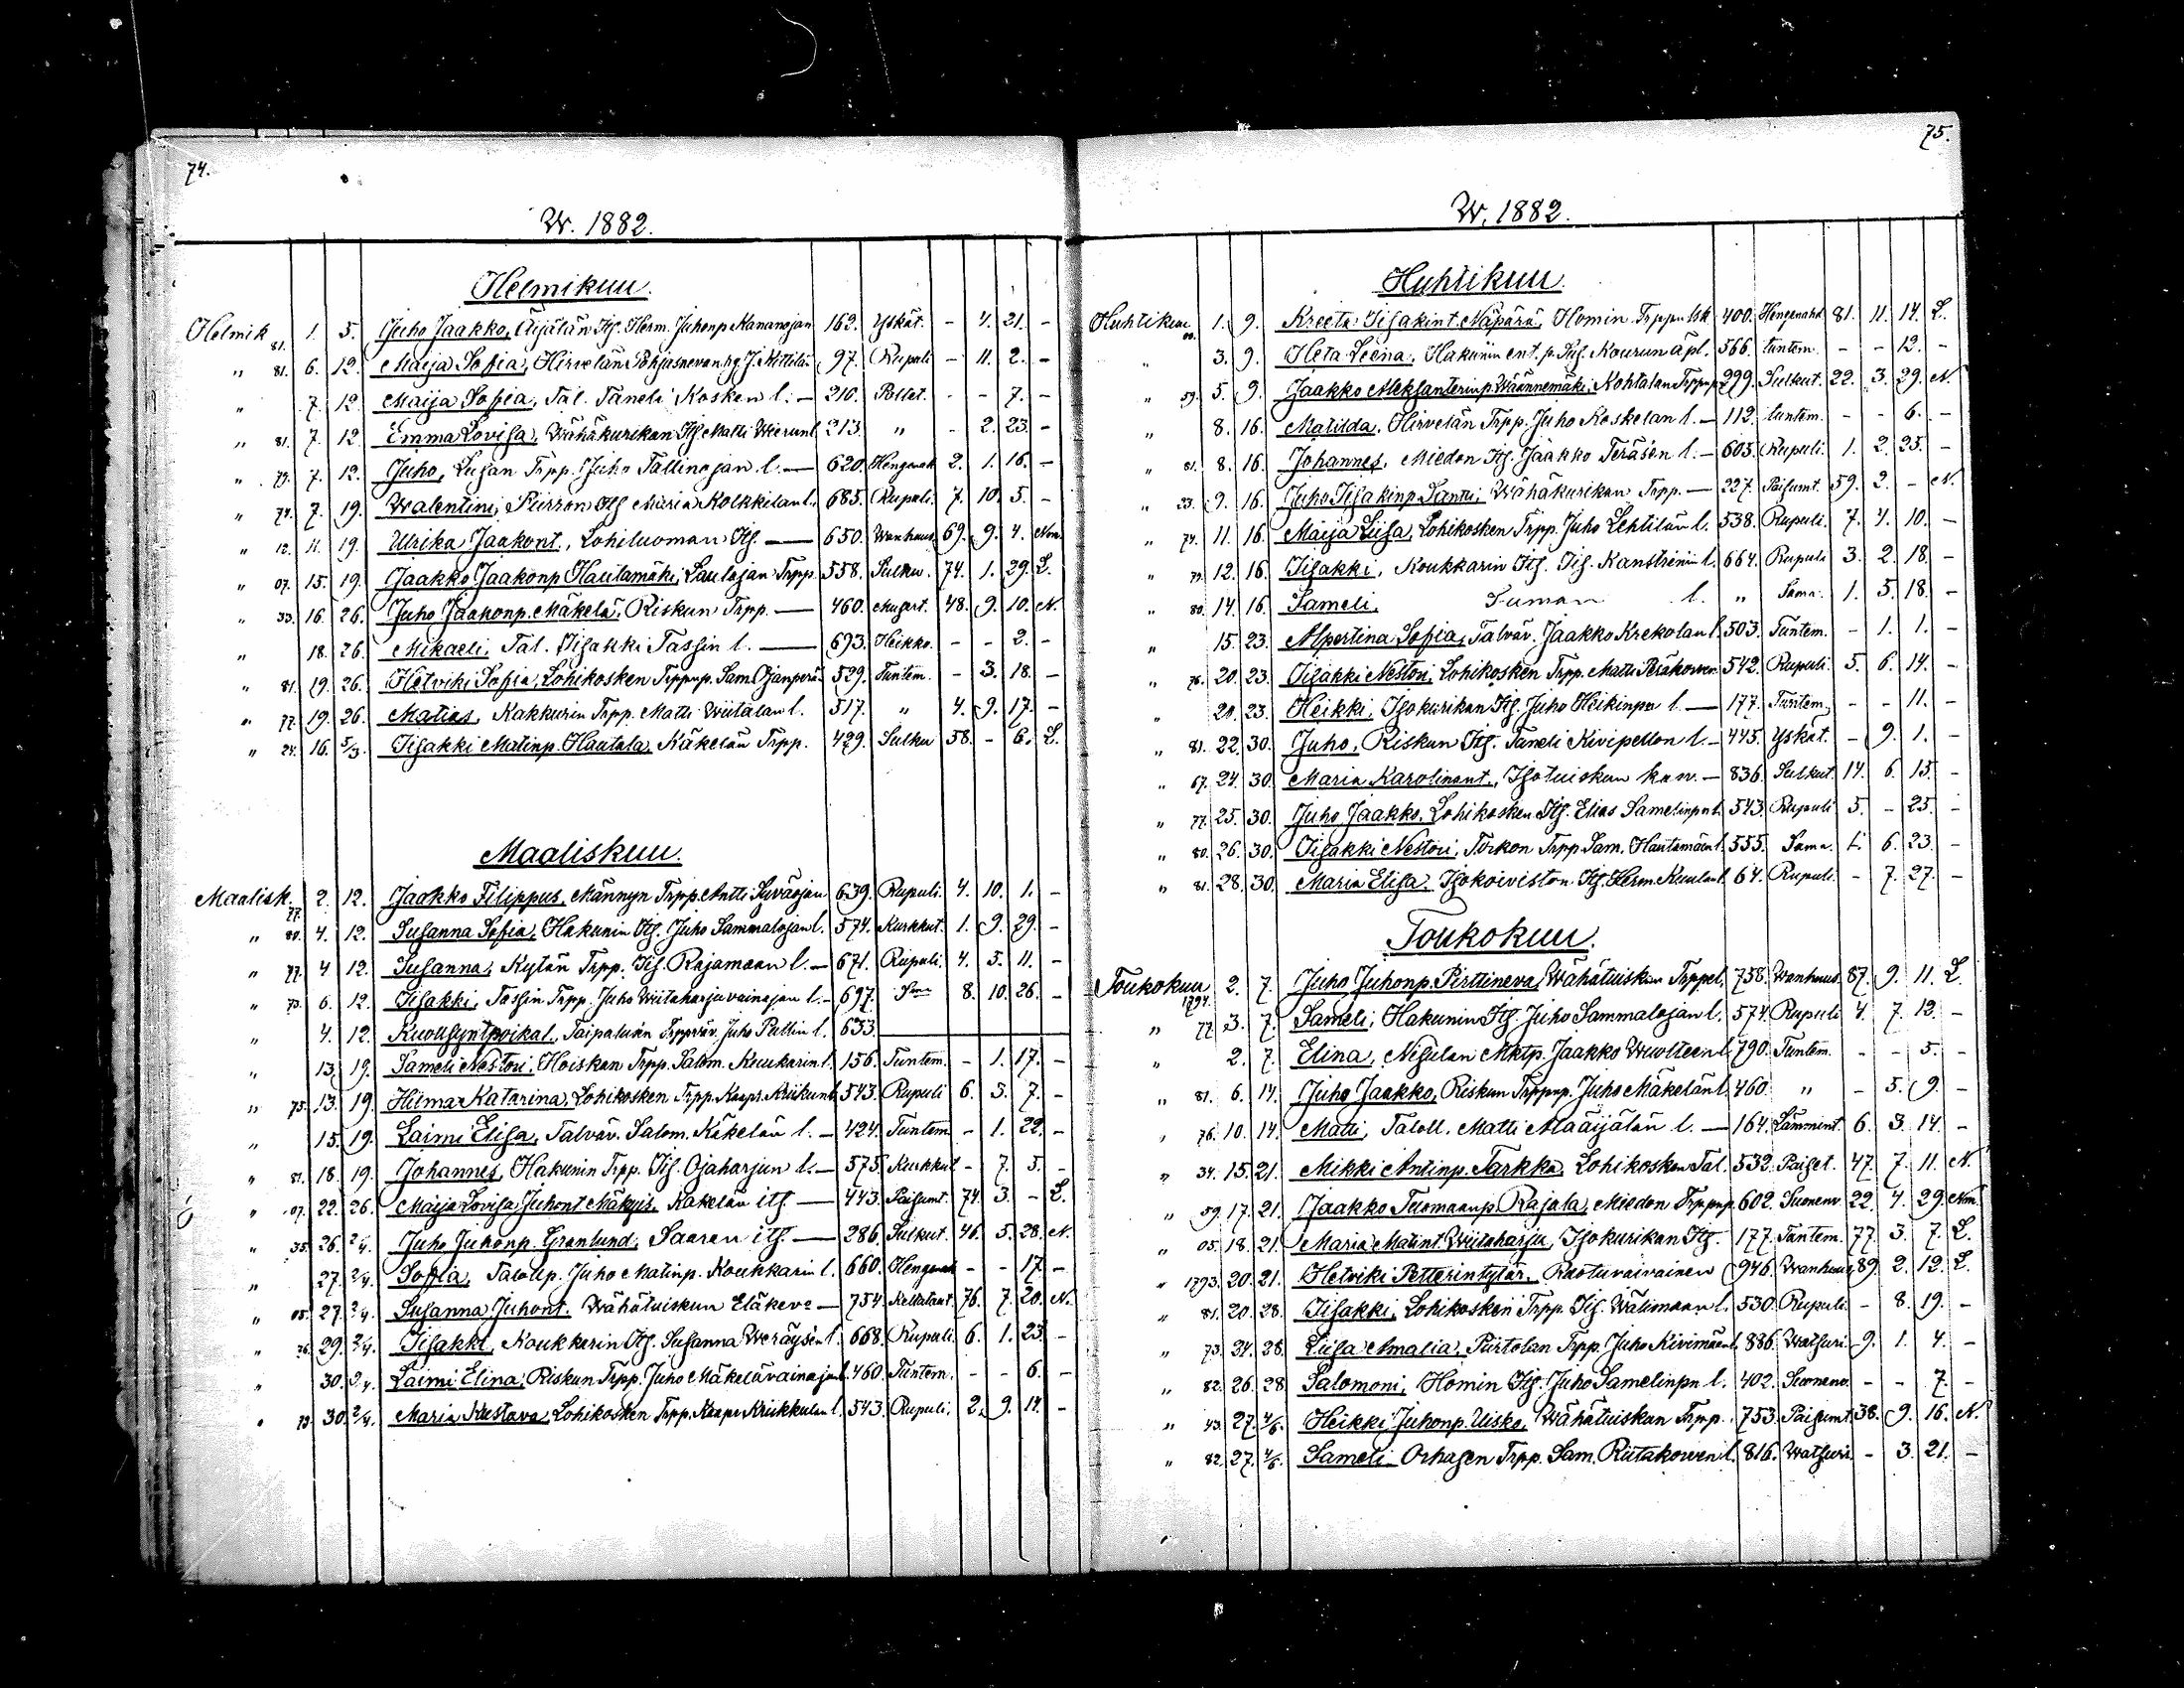 74.
W. 1882.
Helmikuu.
Helmik 81. 1. 5. Juho Jaakko, Äijälän Itς. Herm. Juhonp Kananojan 162. Yskät. - 4. 21. -
" 81. 6. 12. Maija Sofia, Hirvelän Pohjasnevan 97. Rupuli - 11. 2. -
" 7. 12. Maija Sofia, Tal. Taneli Kosken l. — 210. Pollet. - - 7. -
" 81. 7. 12. Emma Lovisa, Wähäkurikan Itς. Matti Wierunl. 213. " - 2. 23. -
" 79. 7. 12. Juho, Luςan Trpp. Juho Tallinojan l. — 620. Hengenah 2. 1. 16. -
" 74. 7. 19. Walentini, Piirron Itς Maria Kolkkilan l. 685. Rupuli. 7. 10. 5. -
" 12. 11. 19. Ulrika Jaakont., Lohiluoman Itς. — 650. Wanhuus 69. 9. 4. Nm.
" 07. 15. 19. Jaakko Jaakonp Hautamäki, Laulajan Trpp. 558. Sulku. 74. 1. 29. L.
" 33. 16. 26. Juho Jaakonp. Mäkelä, Riskun Trpp. — 460. 48. 9. 10. N.
" 18. 26. Mikaeli, Tal. Iisakki Tassin l. — 693. Heikko. - - 2. -
" 81. 19. 26. Hetviki Sofia, Lohikosken Trppnp. Sam. Ojanperä 529. Tuntem. - 3. 18. -
" 77. 19. 26. Matias, Kakkurin Trpp. Matti Wiitalan l. 517. " 4. 9. 17. -
" 24. 16. 5/3. Iisakki Matinp. Hautala, Käkelän Trpp. 429. Sulku 58. - 6. L.
Maaliskuu.
Maalisk. 77. 2. 12. Jaakko Filippus, Männyn Trpp. Antti Syväojan 639. Rupuli. 4. 10. 1. -
" 80. 4. 12. Susanna Sofia, Hakunin Itς. Juho Sammalojan l. 574. Kurkkut. 1. 9. 29. -
" 77. 4 12. Susanna, Kylän Trpp. Iis. Rajamaan l. — 671. Rupuli. 4. 5. 11. -
" 73. 6. 12. Iisakki, Tassin Trpp. Juho Wiitaharjuvainajan l. - 697. Sma 8. 10. 26. -
" 4. 12. Kuollsyntpoikal., Taipaluan Trppväv. Juho Pallin l. 633.
" 13. 19. Sameli Nestori, Hoiskan Trpp. Salom. Kuukarin l. 156. Tuntem. - 1. 17. -
" 75. 13. 19. Hilma Katarina, Lohikosken Trpp. Kaapr. Kriikunl 543. Rupuli 6. 3. 7. -
" 15. 19. Laimi Elisa, Talväv. Salom. Käkelän l. — 424. Tuntem - 1. 22. -
" 81. 18. 19. Johannes, Hakunin Trpp. Iis. Ojaharjun l. — 575. Kurkkut - 7. 5. -
" 07. 22. 26. Maija Lovisa Juhont Mäkyis, Kakelän itς — 443. Paisumt. 74. 3. - L.
" 35. 26. 2/4. Juho Juhonp. Granlund, Saaran itς — 286. Sulkut. 46. 5. 28. N.
" 27. 2/4. Sofia, Talollp. Juho Matinp. Koukkarin l. 660. Hengenah - - 17. -
" 05. 27. 2/4. Susanna Juhont. Wähätuiskun Eläkev: — 754. Keltataut. 76. 7. 20. N.
" 76. 29. 2/4. Iisakki, Koukkarin Itς. Susanna Weräysen l. 668. Rupuli. 6. 1. 23. -
" 30. 2/4. Laimi Elina, Riskun Trpp. Juho Mäkelävainajanl. 460. Tuntem. - - 6. -
" 79. 30. 2/4. Maria Kustava, Lohikosken Trpp. Kaapr Kriikkulan l. 543. Rupuli. 2. 9. 14. -
75.
W. 1882.
Huhtikuu.
Huhtikuu 00. 1. 9. Kreeta Iisakint. Näpärä, Homin Trppn lsk 400. Hengenahd 81. 11. 14. L.
" 3. 9. Heta Leena, Hakunin ent. p. Iis. Kourun äpl. 566. tuntem. - - 12. -
" 59. 5. 9. Jaakko Aleksanterinp. Wäännemäki, Kohtalan Trppnp 299. Sulkut. 22. 3. 29. N.
" 8. 16. Matilda, Hirvelän Trpp. Juho Koskelan l. — 112. tuntem. - - 6. -
" 81. 8. 16. Johannes, Miedon Itς. Jaakko Teräsen l. — 605. Rupuli. 1. 2. 25. -
" 23. 9. 16. Juho Iisakinp. Santti, Wähäkurikan Trpp. — 227. Paisumt. 59. 2. - N.
" 74. 11. 16. Maija Liisa, Lohikosken Trpp. Juho Lehtilän l. 538. Rupuli. 7. 4. 10. -
" 79. 12. 16. Iisakki, Koukkarin Itς. Iis. Kanstrenin l. 664. Rupuli 3. 2. 18. -
" 80. 14. 16. Sameli, Suman l. " Sama. 1. 5. 18. -
" 15. 23. Alpertina Sofia, Talväv. Jaakko Krekolan l. 503. Tuntem. - 1. 1. -
" 76. 20. 23. Iisakki Nestori, Lohikosken Trpp. Matti Peräkorven 542. Rupuli. 5. 6. 14. -
" 20. 23. Heikki, Isokurikan Itς. Juho Heikinpn l. — 177. Tuntem. - - 11. -
" 81. 22. 30. Juho, Riskun Itς. Taneli Kivipellon l. — 445. Yskät. - 9. 1. -
" 67. 24. 30. Maria Karolinant., Isotuiskun — 836. Sulkut. 14. 6. 15. -
" 77. 25. 30. Juho Jaakko, Lohikosken Itς. Elias Samelinpn l. 543. Rupuli 5. - 25. -
" 80. 26. 30. Iisakki Nestori, Torkon Trpp Sam. Hautamäen l. 555. Sama. 1. 6. 23. -
" 81. 28. 30. Maria Elisa, Isokoiviston Itς. Herm. Kuulan l. 64. Rupuli. - 7. 27. -
Toukokuu.
Toukokuu 1794. 2. 7. Juho Juhonp. Perttineva, Wähätuiskun Trppel. 758. Wanhuus. 87. 9. 11. L.
" 77. 3. 7. Sameli, Hakunin Itς. Juho Sammalojan l. 574. Rupuli 4. 7. 12. -
" 2. 7. Elina, Nisulan Mktp. Jaakko Wuolteen l. 790. Tuntem. - - 5. -
" 81. 6. 14. Juho Jaakko, Riskun Trppnp. Juho Mäkelän l. 460. " - 5. 9. -
" 76. 10. 14. Matti, Taloll. Matti Määijälän l. — 164. Lämmint. 6. 3. 14. -
" 34. 15. 21. Mikki Antinp. Tarkka, Lohikosken Tal. 532. Paiset. 47. 7. 11. N.
" 59. 17. 21. Jaakko Tuomaanp Rajala, Miedon Trppnp. 602. Suonenv. 22. 4. 29. Nm.
" 05. 18. 21. Maria Matint. Wiitaharju, Isokurikan Itς. 177. Tuntem. 77. 3. 7. L.
" 1793. 20. 21. Hetviki Petterintytär, Ruotuvaivainen 946. Wanhuus 89. 2. 12. L.
" 81. 20. 28. Iisakki, Lohikosken Trpp. Iis. Wälimaan l. 530. Rupuli. - 8. 19. -
" 73. 24. 28. Liisa Amalia, Piirtolan Trpp. Juho Kivimäen l. 886. Watsuri. 9. 1. 4. -
" 82. 26. 28. Salomoni, Homin Itς. Juho Samelinpn l. 402. Suonenv. - - 7. -
" 43. 27. 4/6. Heikki Juhonp. Uisko, Wähätuiskun Trpp. 753. Paisumt. 38. 9. 16. N.
" 82. 27. 4/6. Sameli Orhasen Trpp. Sam. Riitakorven l. 816. Watsuri. - 3. 21. -